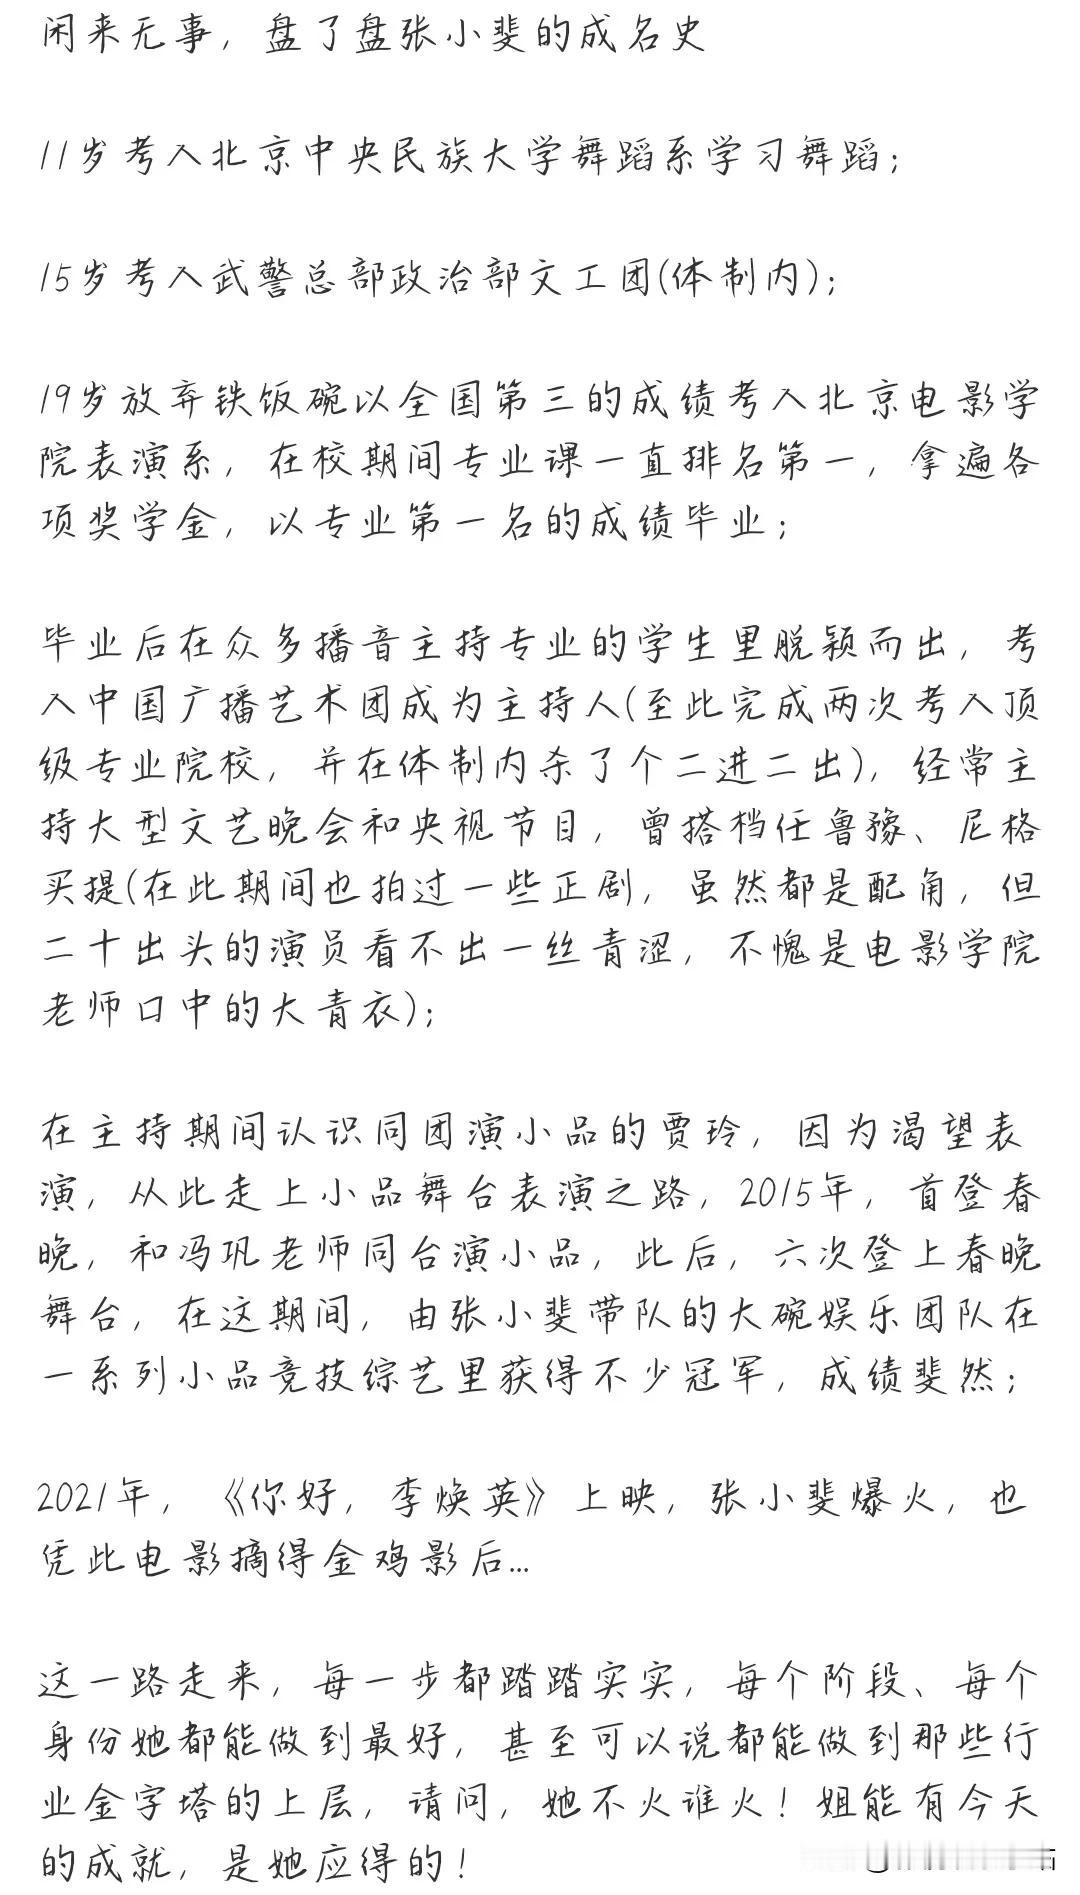 闲来无事，盘了盘张小斐的成名史
11岁考入北京中央民族大学舞蹈系学习舞蹈；
15岁考入武警总部政治部文工团(体制内)；
19岁放弃铁饭碗以全国第三的成绩考入北京电影学
院表演系，在校期间专业课一直排名第一，拿遍各
项奖学金，以专业第一名的成绩毕业；
毕业后在众多播音主持专业的学生里脱颖而出，考
入中国广播艺术团成为主持人(至此完成两次考入顶
级专业院校，并在体制内杀了个二进二出)，经常主
持大型文艺晚会和央视节目，曾搭档任鲁豫、尼格
买提(在此期间也拍过一些正剧，虽然都是配角，但
二十出头的演员看不出一丝青涩，不愧是电影学院
老师口中的大青衣)；
在主持期间认识同团演小品的贾玲，因为渴望表
演，从此走上小品舞台表演之路，2015年，首登春
晚，和冯巩老师同台演小品，此后，六次登上春晚
舞台，在这期间，由张小斐带队的大碗娱乐团队在
一系列小品竞技综艺里获得不少冠军，成绩斐然；
2021年，《你好，李焕英》上映，张小斐爆火，也
凭此电影摘得金鸡影后...
这一路走来，每一步都踏踏实实，每个阶段、每个
身份她都能做到最好，甚至可以说都能做到那些行
业金字塔的上层，请问，她不火谁火！姐能有今天
的成就，是她应得的！